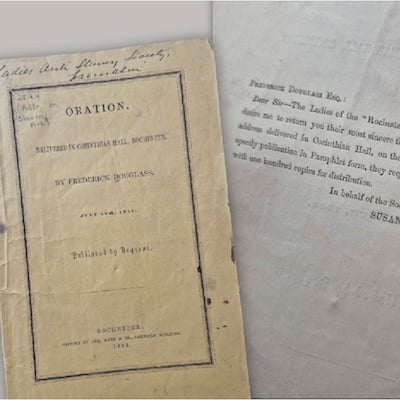 Ladies Anti Slavery Society,
Franklin
ORATION,
DELIVERED IN CORINTHIAN HALL, ROCHESTER,
BY FREDERICK DOUGLASS,
JULY 5TH, 1852.
Published by Request.
ROCHESTER:
PRINTED BY LEE, MANN & CO., AMERICAN BUILDING.
1852.
FREDERICK DOUGLASS ESQ.:
Dear Sir—The Ladies of the "Rochester
desire me to return you their most sincere
address delivered in Corinthian Hall, on the
speedy publication in Pamphlet form, they
with one hundred copies for distribution.
In behalf of the
SUSAN